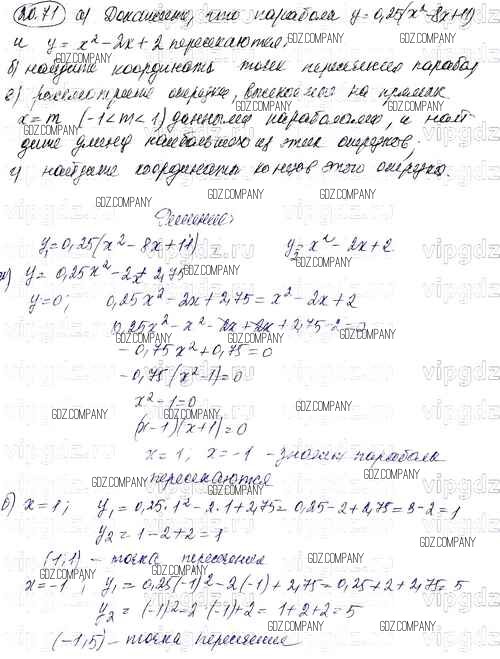 20.71 а) Докажите, что парабола y = 0,25(x² - 8x + 11)
и y = x² - 2x + 2 пересекаются;
б) найдите координаты точек пересечения парабол
в) рассмотрите отрезки, высекаемые на прямых
x = m (-1 < m < 1) данными параболами, и най-
дите длину наибольшего из этих отрезков;
г) найдите координаты концов этого отрезка.
Решение:
y₁ = 0,25(x² - 8x + 11) y₂ = x² - 2x + 2
а) y = 0,25x² - 2x + 2,75
y = 0; 0,25x² - 2x + 2,75 = x² - 2x + 2
0,25x² - x² - 2x + 2x + 2,75 - 2 = 0
- 0,75x² + 0,75 = 0
- 0,75(x² - 1) = 0
x² - 1 = 0
(x - 1)(x + 1) = 0
x = 1; x = -1 - значит парабола
пересекаются
б) x = 1; y₁ = 0,25·1² - 2·1 + 2,75 = 0,25 - 2 + 2,75 = 3 - 2 = 1
y₂ = 1 - 2 + 2 = 1
(1,1) - точка пересечения
x = -1; y₁ = 0,25(-1)² - 2(-1) + 2,75 = 0,25 + 2 + 2,75 = 5
y₂ = (-1)² - 2·(-1) + 2 = 1 + 2 + 2 = 5
(-1,5) - точка пересечения